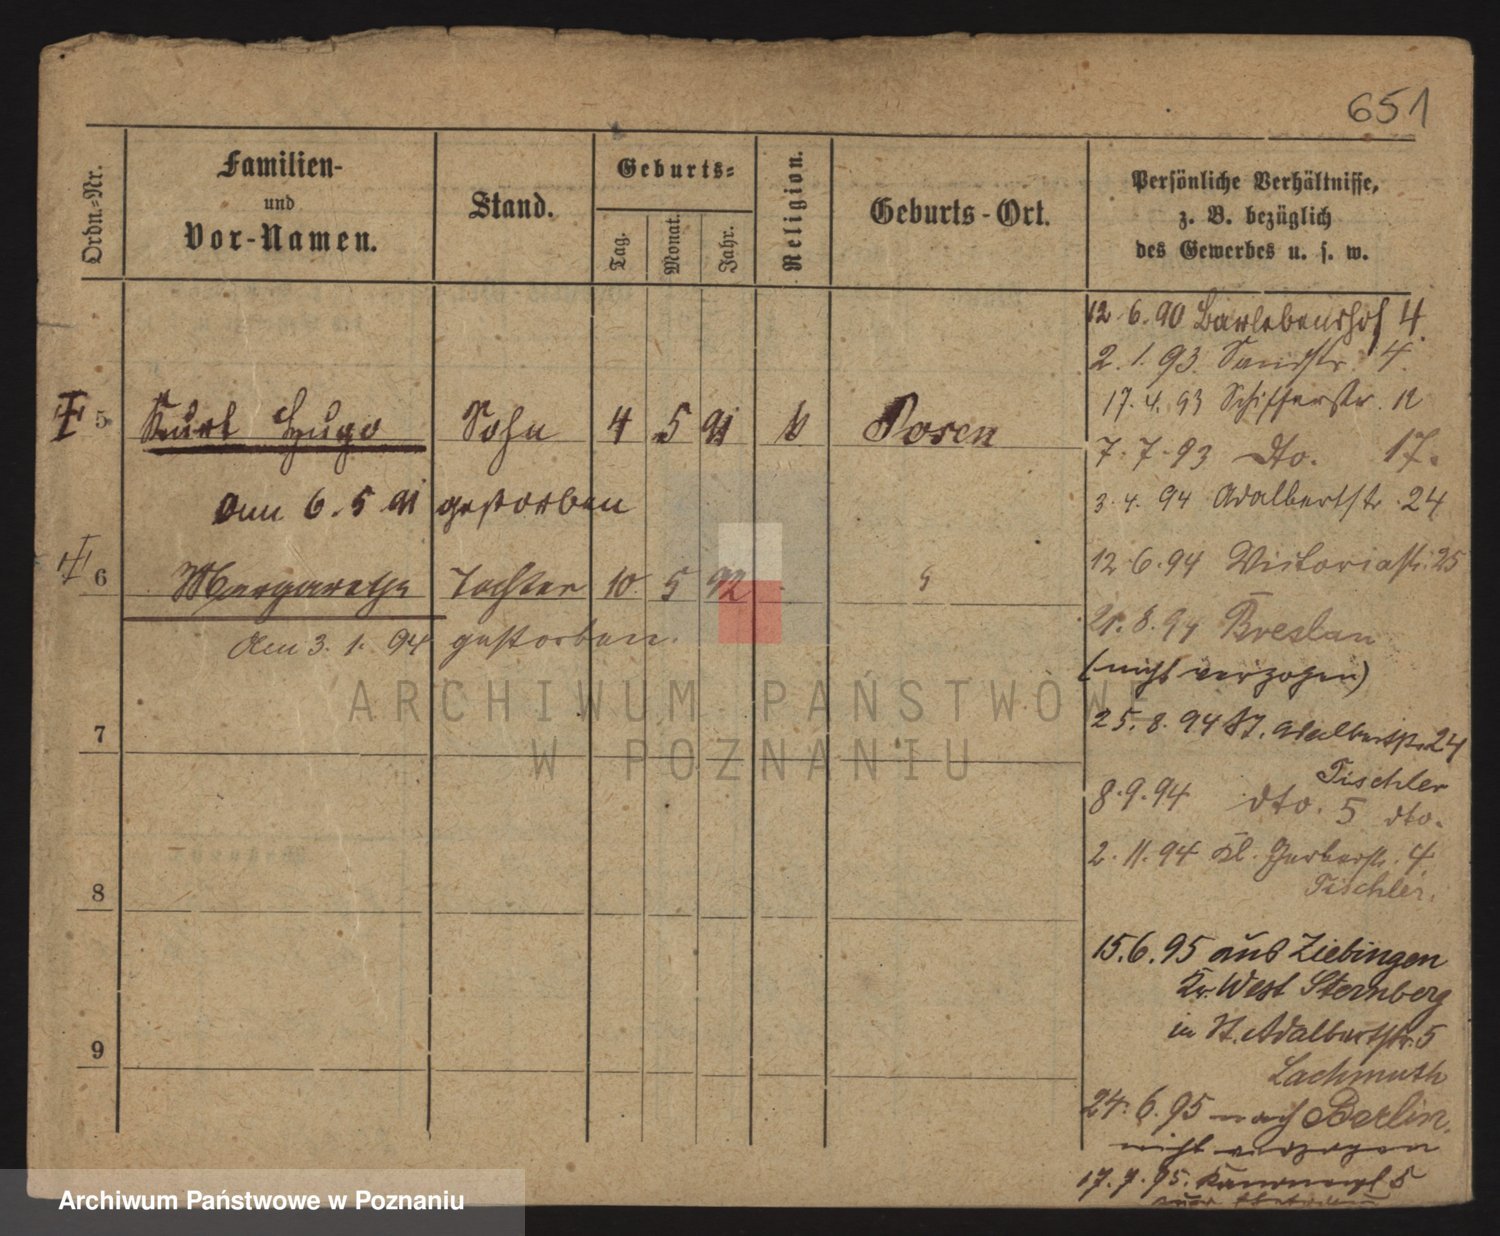 651
Ordn.-Nr.
Familien-
und
Vor-Namen.
Stand.
Geburts-
Tag.
Monat.
Jahr.
Religion.
Geburts-Ort.
Persönliche Verhältnisse,
z. B. bezüglich
des Gewerbes u. s. w.
5 Kurt Hugo Sohn 4 5 91 Posen
am 6. 5 91 gestorben
6 Margarethe Tochter 10. 5 92
Am 3. 1. 94 gestorben.
7
8
9
12. 6. 90 Barlebenshof 4.
2. 1. 93. Sandstr. 4.
17. 4. 93 Schifferstr. 12
7. 7. 93 dto. 17.
3. 4. 94 Adalbertstr. 24
12. 6. 94 Victoriastr. 25
21. 8. 94 Breslau
(nicht verzogen)
25. 8. 94 St. Adalbertstr. 24
Tischler
8. 9. 94 dto. 5 dto.
2. 11. 94 Kl. Gerberstr. 4
Tischler.
15. 6. 95 aus Ziebingen
Kr. West Sternberg
in St. Adalbertstr. 5
Lachmuth
24. 6. 95 nach Berlin.
nicht verzogen
ARCHIWUM PAŃSTWOWE
W POZNANIU
Archiwum Państwowe w Poznaniu